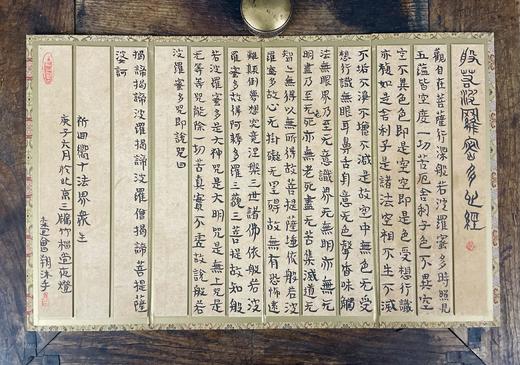 般若波羅蜜多心經
觀自在菩薩行深般若波羅蜜多時照見
五蘊皆空度一切苦厄舍利子色不異空
空不異色色即是空空即是色受想行識
亦復如是舍利子是諸法空相不生不滅
不垢不淨不增不減是故空中無色无受
想行識無眼耳鼻舌身意无色聲香味觸
法無眼界乃至无意識界无無明亦無无
明盡乃至无老死亦无老死盡无苦集滅道无
智亦無得以無所得故菩提薩埵依般若波
羅蜜多故心无掛礙无罣碍故無有恐怖遠
離顛倒夢想究竟涅槃三世諸佛依般若波
羅蜜多故得阿耨多羅三藐三菩提故知般
若波羅蜜多是大神咒是大明咒是無上咒是
无等等咒能除一切苦真實不虛故說般若
波羅蜜多咒即說咒曰
揭諦揭諦波羅揭諦波羅僧揭諦菩提薩
婆訶
祈回嚮十法界衆生
庚子六月於北京三竹堂夜燈
會朝沐手